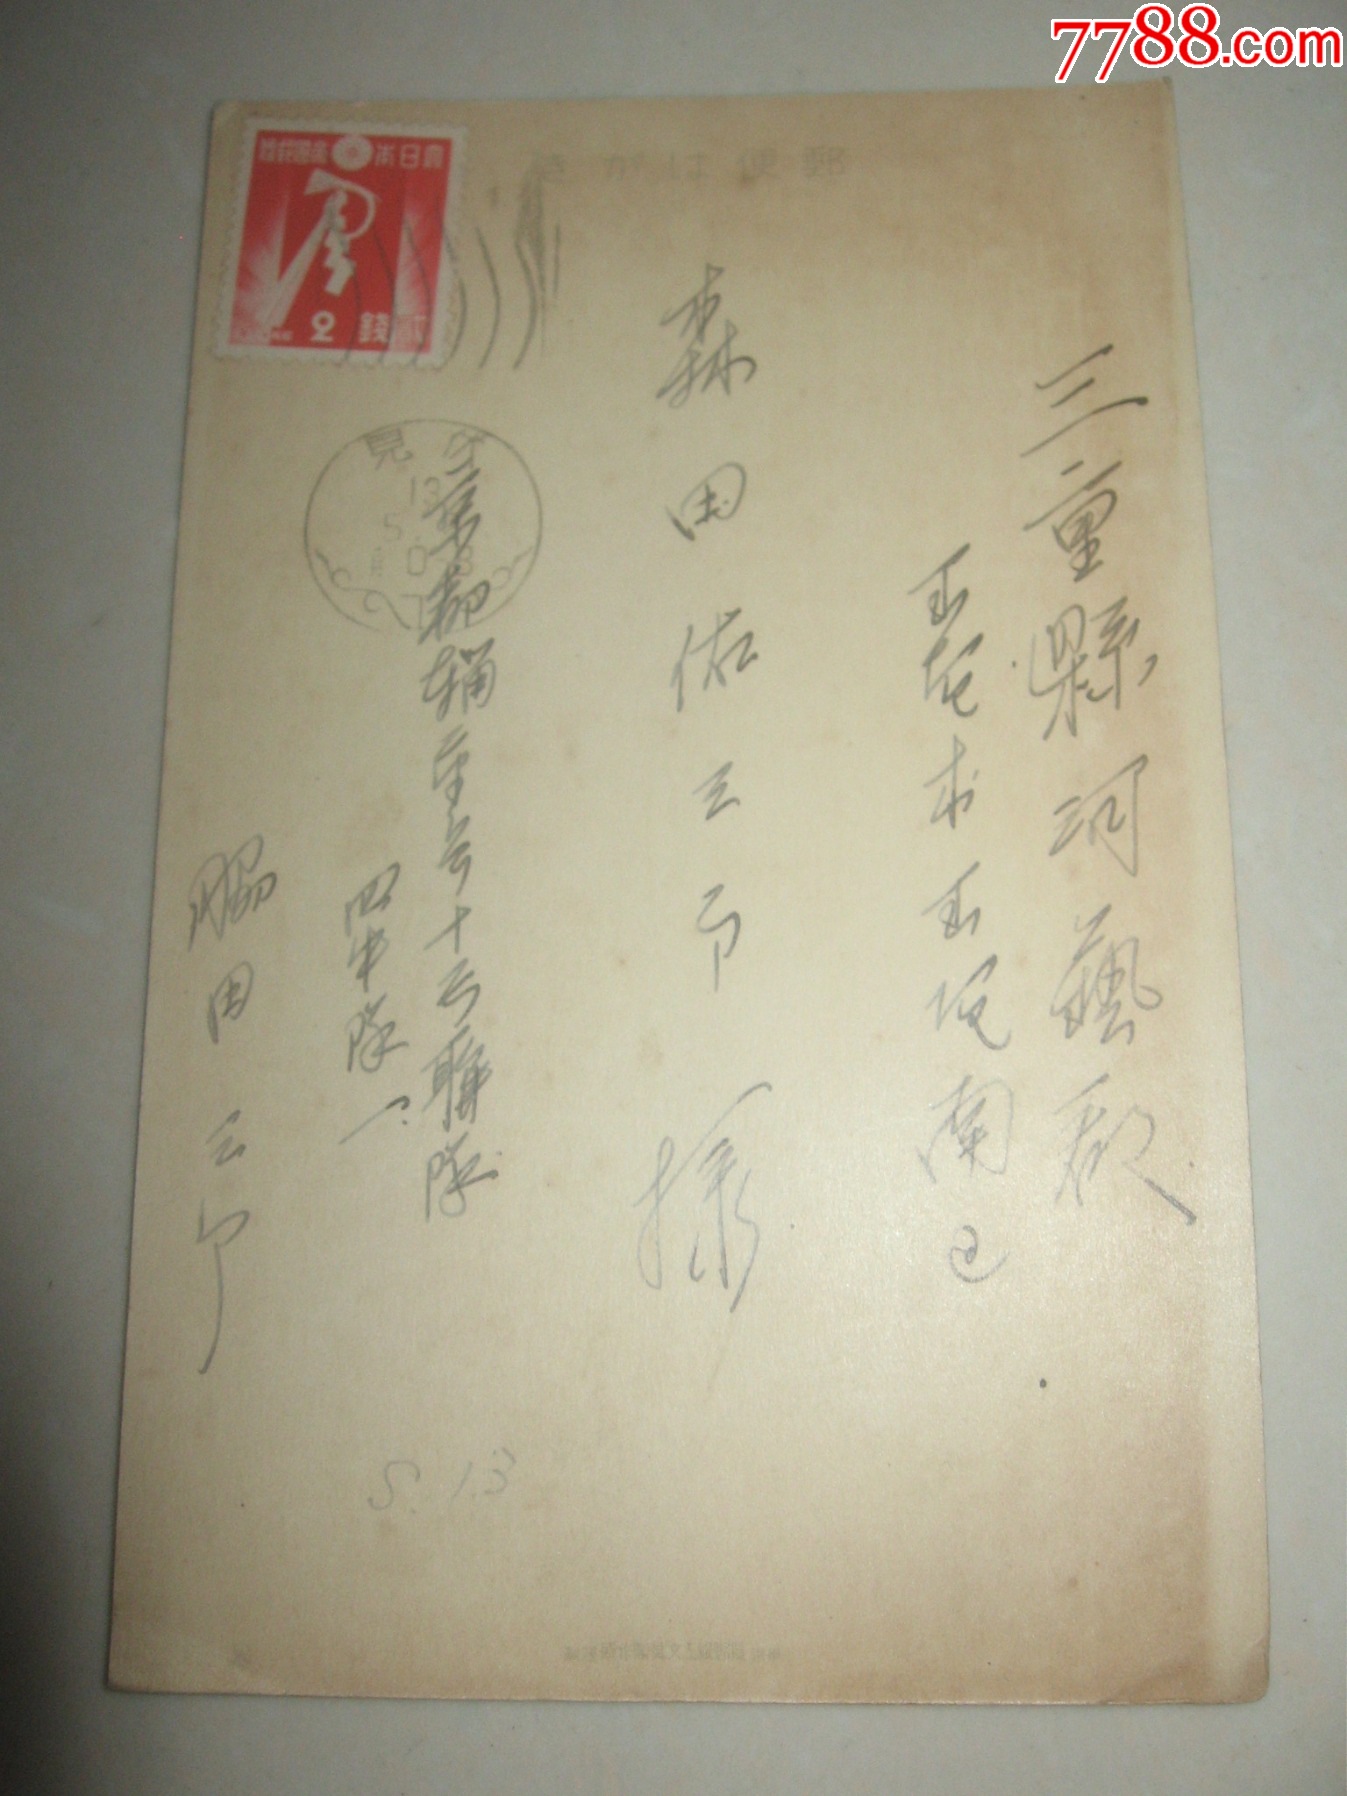 7788.com
郵便はがき
大日本帝國郵便
貳錢 2
三重縣河藝郡
玉垣村玉垣南区
森田佐三郎様
伏見
13
京都輜重兵十六聯隊
四中隊
脇田三郎
S.13